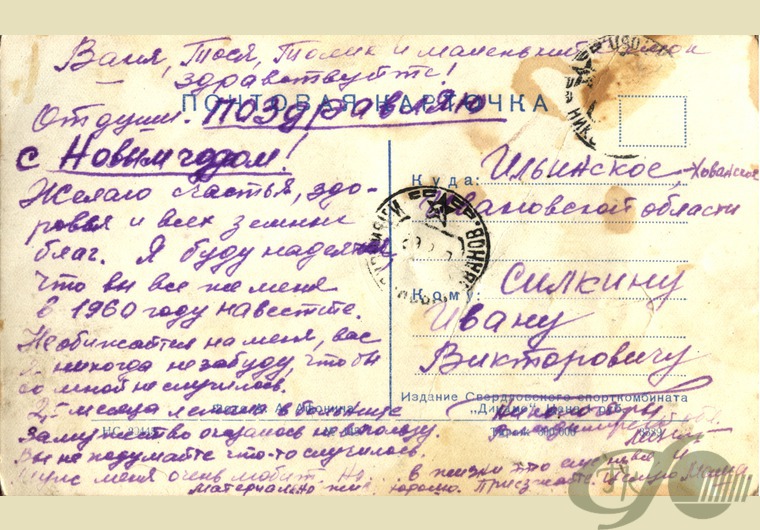 Ваня, Тося, Толик и маленький
здравствуйте!
ПОЧТОВАЯ КАРТОЧКА
От души. поздравляю
с Новым годом!
Желаю счастья, здо-
ровья и всех земных
благ. Я буду надеятся
что вы все же меня
в 1960 году навестите.
Не обижайтся на меня, вас
я никогда не забуду, что бы
со мной не случилось.
2 месяца я лежала в больнице
замужество оказалось не на пользу.
Вы не подумайте что-то случилось.
муж меня очень любит. Но... в жизни
Материально живу хорошо. Приезжайте.
Куда: Ильинское-Хованское
Ивановской области
Кому: Силкину
Ивану
Викторовичу
Издание Свердловского спорткомбината
"Динамо"